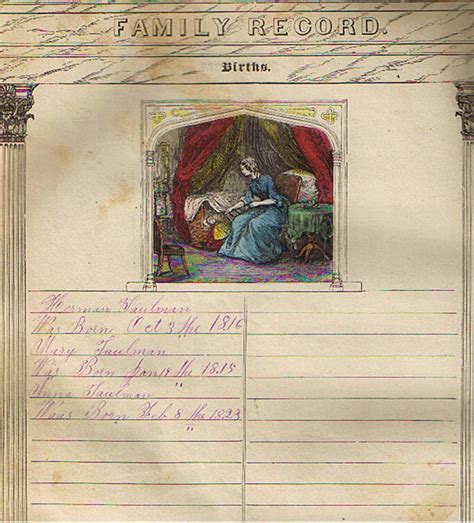 FAMILY RECORD.
Births.
Herman Taulman
Was Born Oct 3 the 1816
Mary Taulman
Was Born Jan 18 the 1815
"
Anna Taulman
Was Born Feb 8 the 1823
"